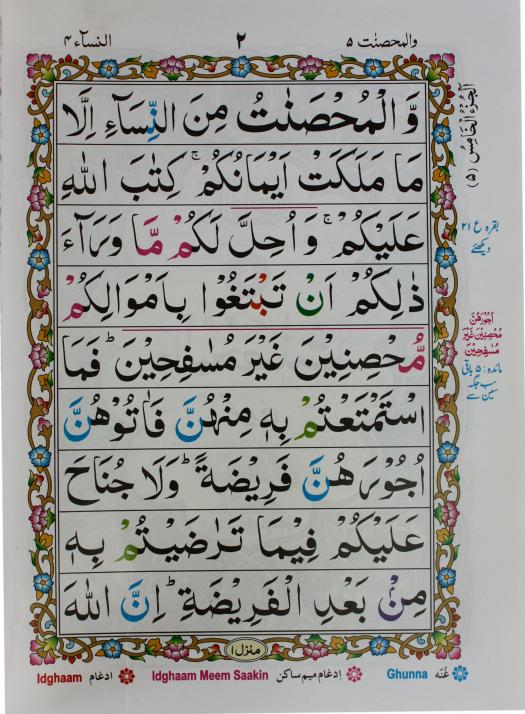 النساۤء ۴ ۲ والمحصنٰت ۵
وَّالْمُحْصَنٰتُ مِنَ النِّسَآءِ اِلَّا
مَا مَلَكَتْ اَيْمَانُكُمْ ۚ كِتٰبَ اللّٰهِ
عَلَيْكُمْ ۚ وَاُحِلَّ لَكُمْ مَّا وَرَآءَ
ذٰلِكُمْ اَنْ تَبْتَغُوْا بِاَمْوَالِكُمْ
مُّحْصِنِيْنَ غَيْرَ مُسٰفِحِيْنَ ؕ فَمَا
اسْتَمْتَعْتُمْ بِهٖ مِنْهُنَّ فَاٰتُوْهُنَّ
اُجُوْرَهُنَّ فَرِيْضَةً ؕ وَلَا جُنَاحَ
عَلَيْكُمْ فِيْمَا تَرٰضَيْتُمْ بِهٖ
مِنْۢ بَعْدِ الْفَرِيْضَةِ ؕ اِنَّ اللّٰهَ
اَلْجُزْءُ الْخَامِسُ (۵)
بقره ع ۲۱
دیکھئے
اُجُوْرَهُنَّ
مُحْصِنِيْنَ غَيْرَ
مُسٰفِحِيْنَ
مائدہ: ۵ باقی
سب جگہ
سین سے
منزل ۱
Idghaam ادغام Idghaam Meem Saakin اِدغام میم ساکن Ghunna غُنّه